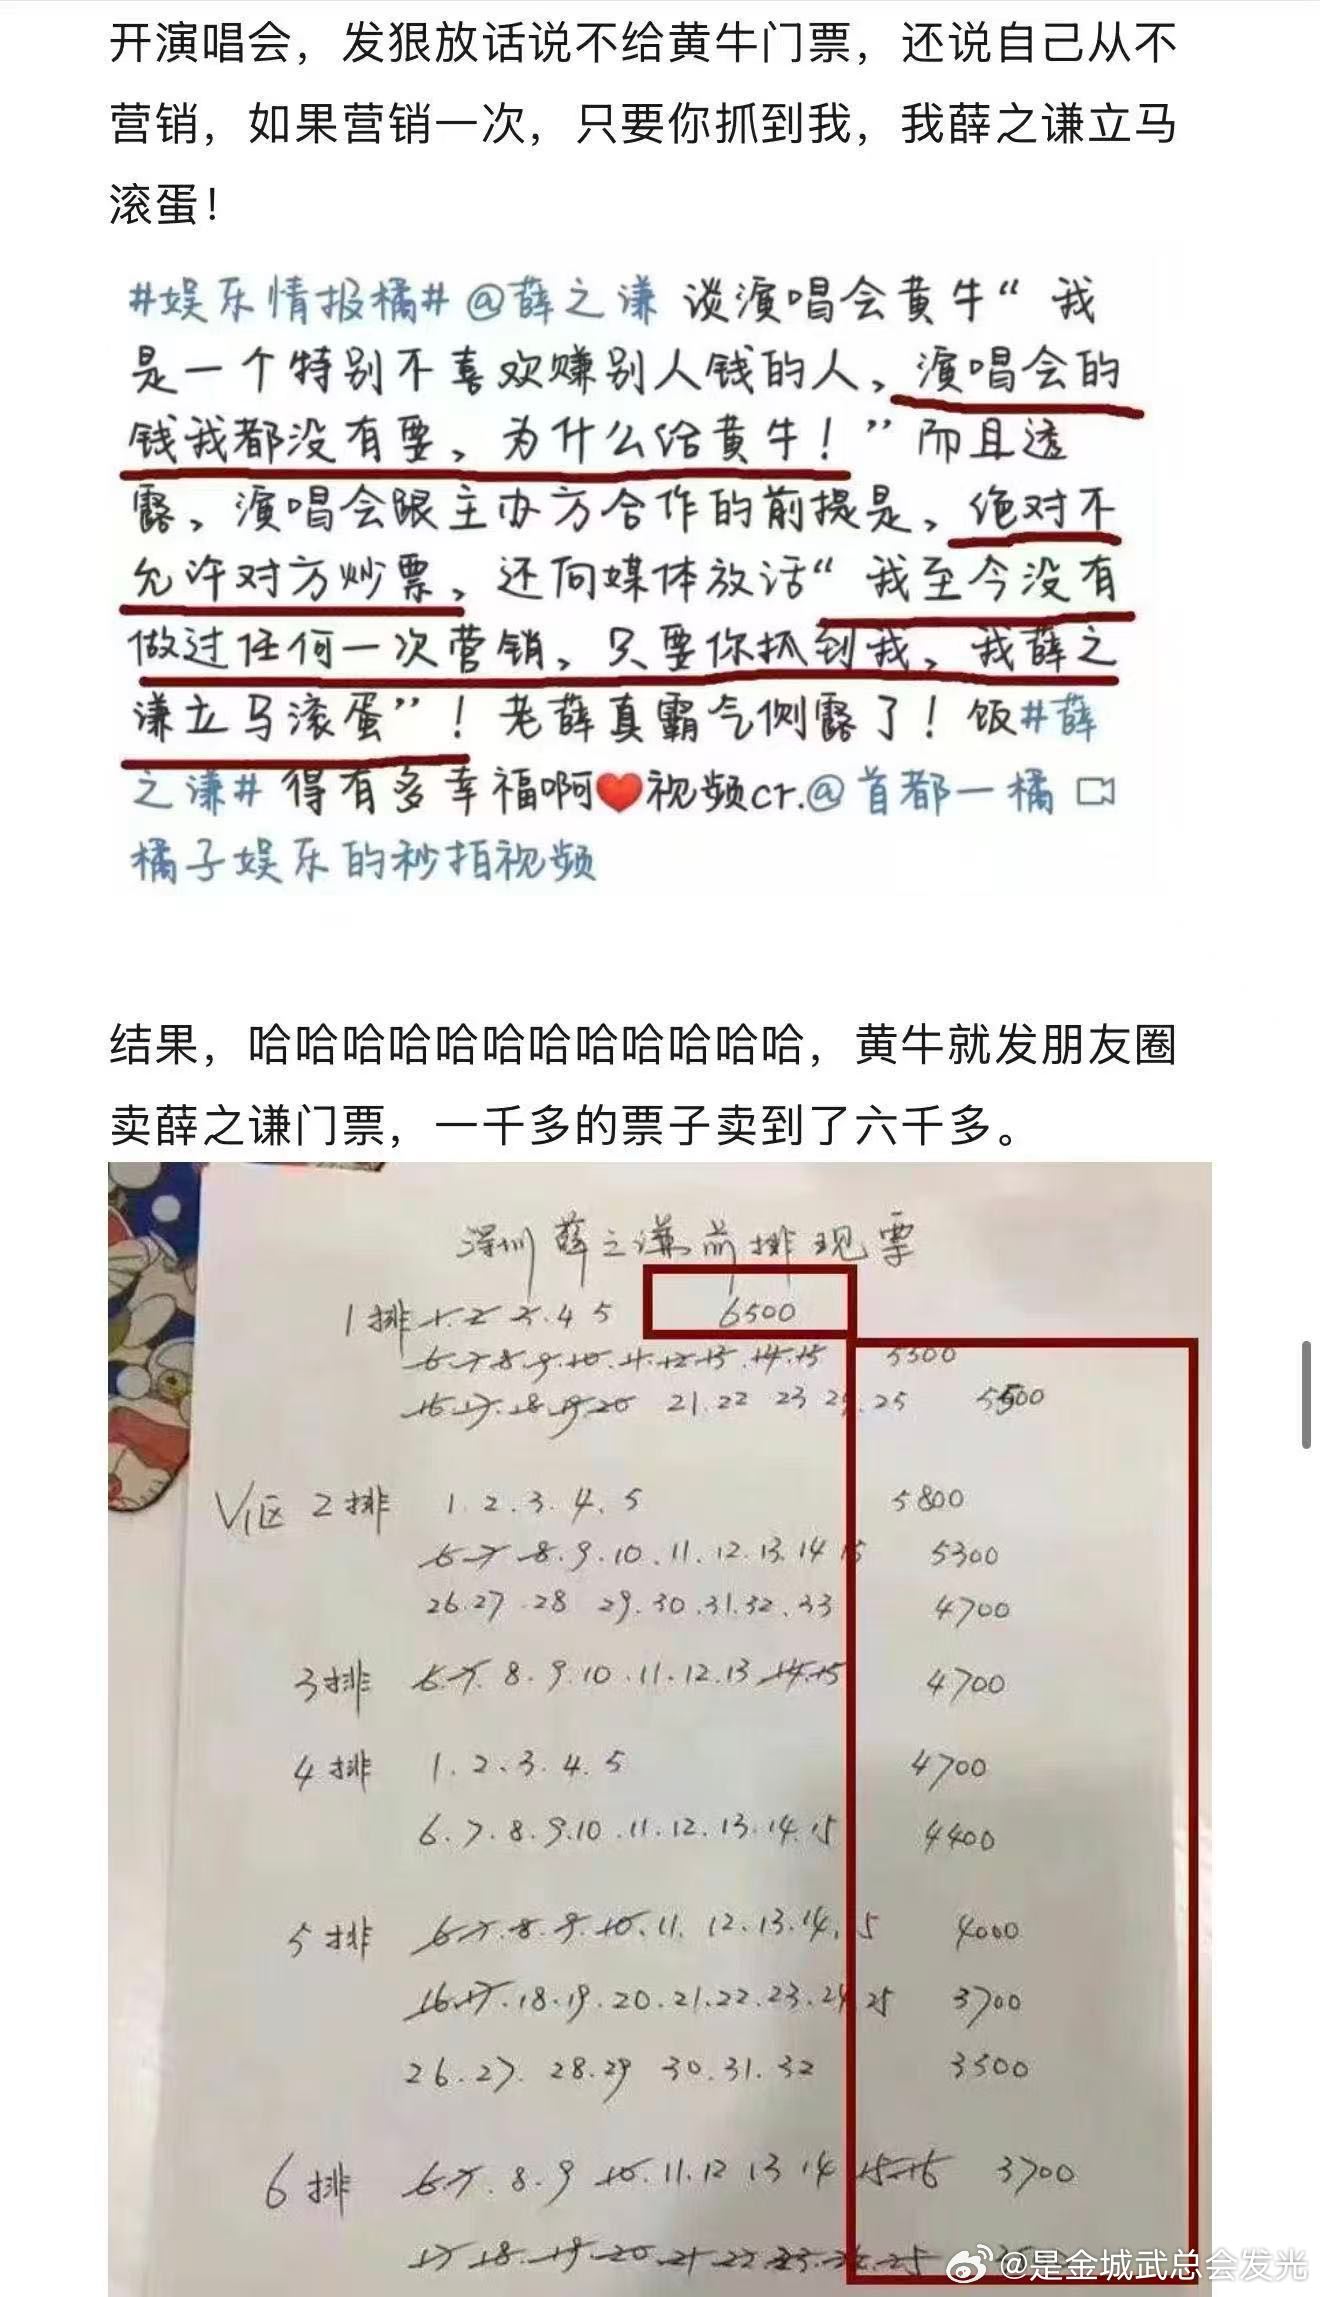 开演唱会，发狠放话说不给黄牛门票，还说自己从不
营销，如果营销一次，只要你抓到我，我薛之谦立马
滚蛋！
#娱乐情报橘#@薛之谦 谈演唱会黄牛“我
是一个特别不喜欢赚别人钱的人，演唱会的
钱我都没有要，为什么给黄牛！”而且透
露，演唱会跟主办方合作的前提是，绝对不
允许对方炒票，还向媒体放话“我至今没有
做过任何一次营销，只要你抓到我，我薛之
谦立马滚蛋”！老薛真霸气侧露了！饭#薛
之谦#得有多幸福啊❤视频cr.@首都一橘
橘子娱乐的秒拍视频
结果，哈哈哈哈哈哈哈哈哈哈哈哈，黄牛就发朋友圈
卖薛之谦门票，一千多的票子卖到了六千多。
深圳薛之谦前排现票
1排 1.2 3.4 5 6500
6.7.8.9.10.11.12.13.14.15 5300
16.17.18.19.20 21.22 23 24.25 5500
V1区 2排 1.2.3.4.5 5800
6.7 8.9.10.11.12.13.14 15 5300
26.27.28 29.30.31.32.33 4700
3排 6.7.8.9.10.11.12.13 14.15 4700
4排 1.2.3.4.5 4700
6.7.8.9.10.11.12.13.14.15 4400
5排 6.7.8.9.10.11.12.13.14.15 4000
16.17.18.19.20.21.22.23.24 25 3700
26.27.28.29 30.31.32 3500
6排 6.7.8.9 10.11.12 13 14 15.16 3700
17 18.19.20 21 22 23.24.25
@是金城武总会发光